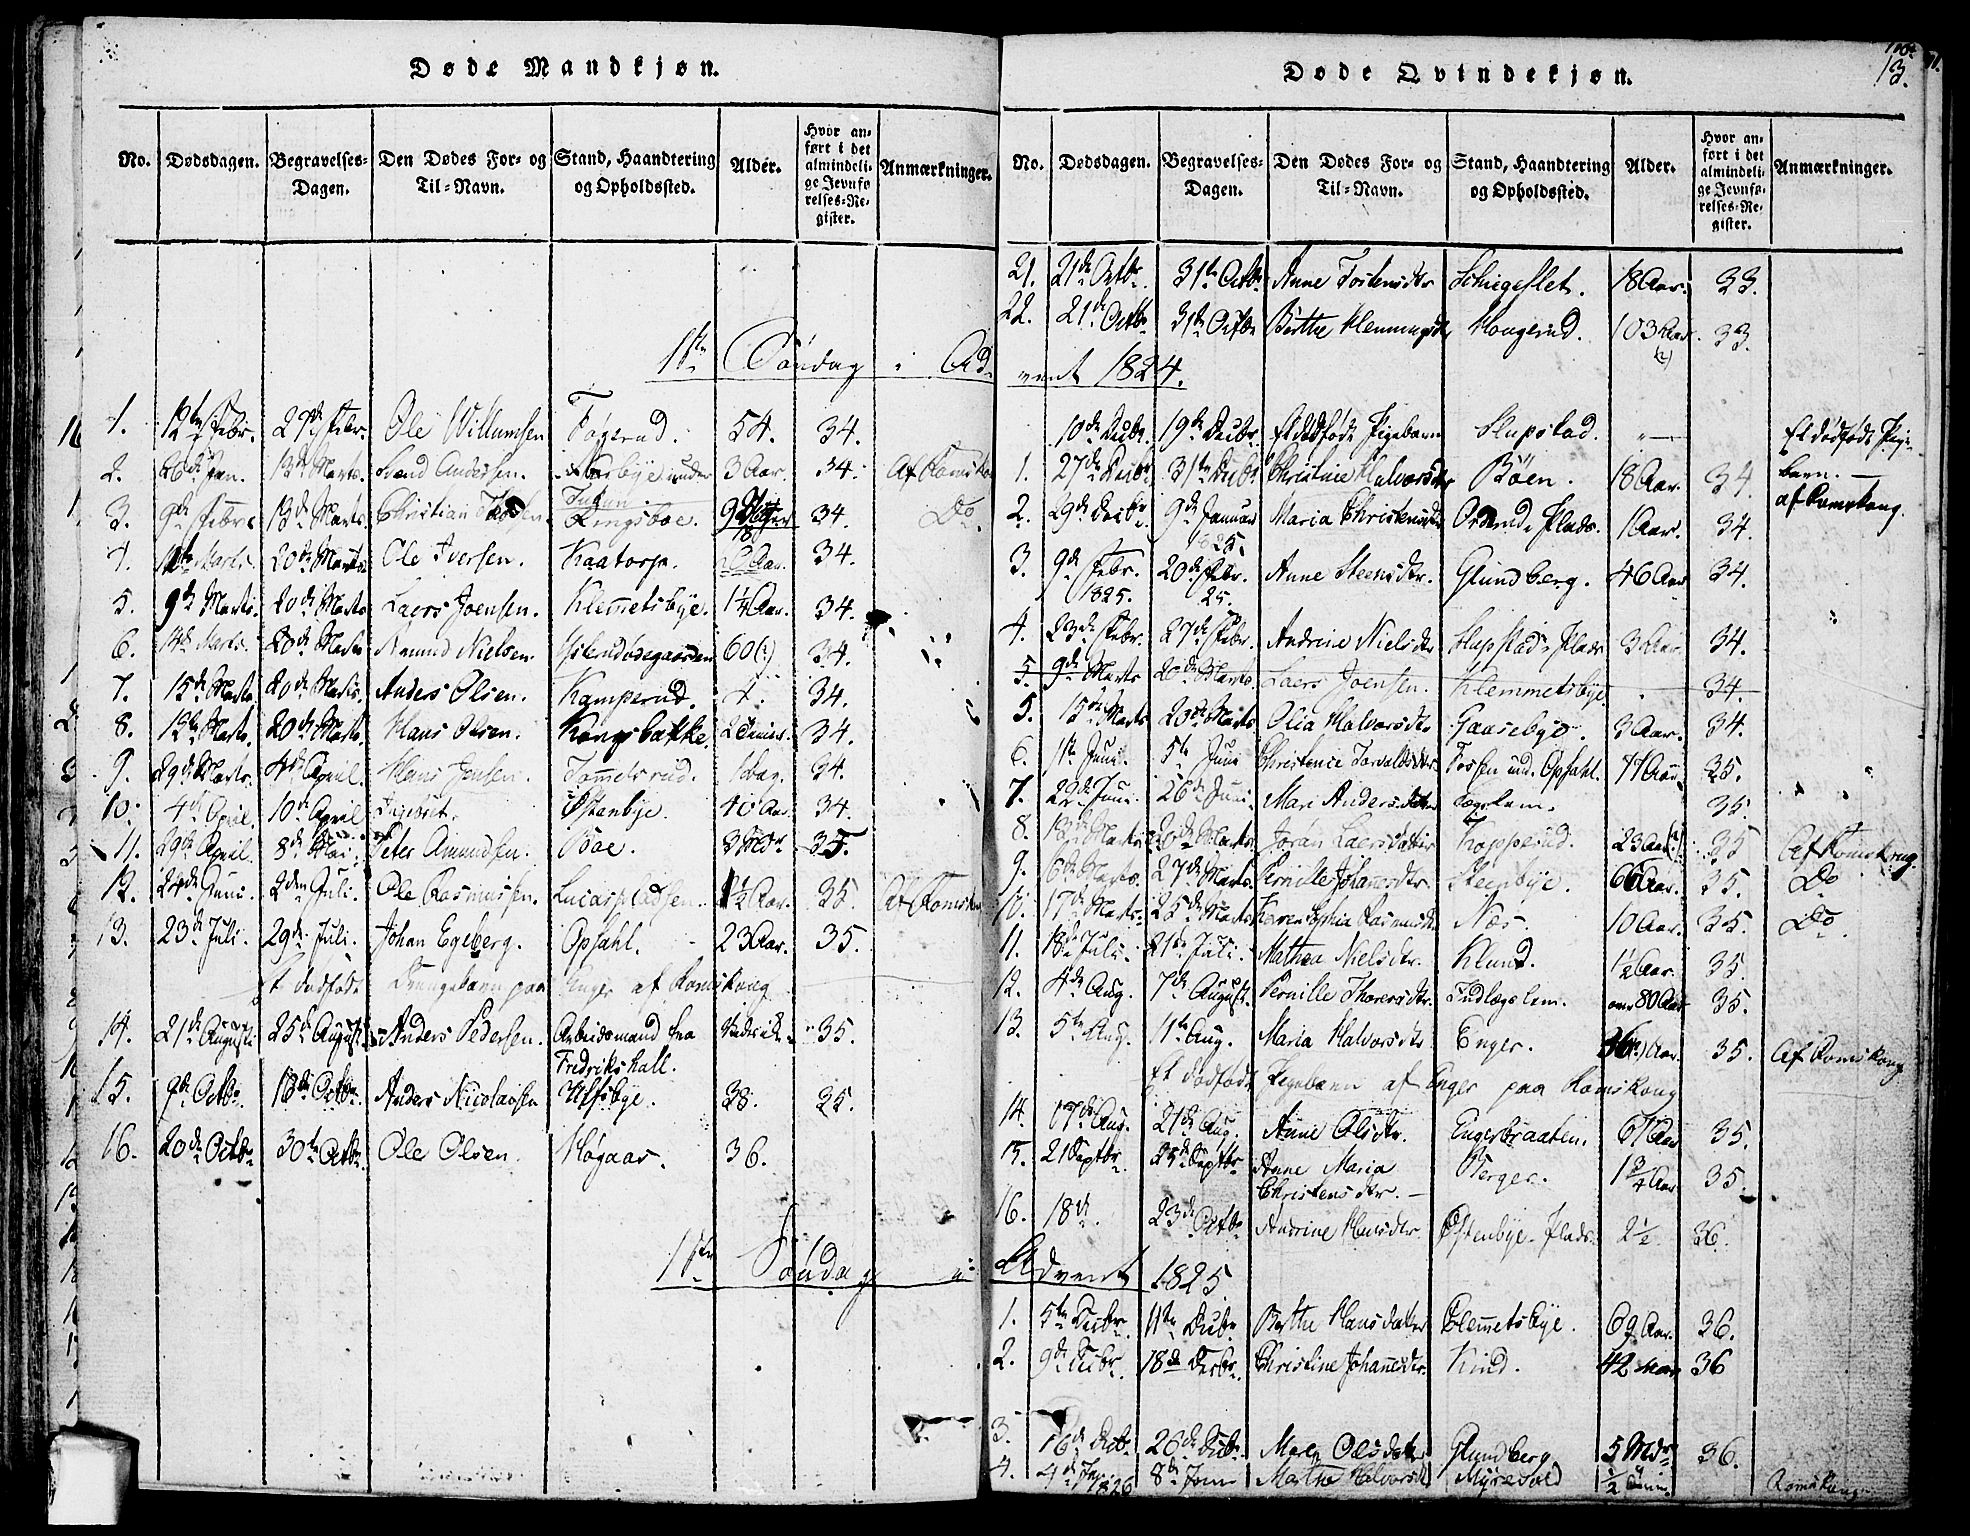 Døde Mandkjøn.
No. Dødsdagen. Begravelses-Dagen. Den Dødes For- og Til-Navn. Stand, Haandtering og Opholdssted. Alder. Hvor anført i det almindelige Jevnførelses-Register. Anmærkninger.
1ste Søndag i Ad-
1. 12te Febr. 27de Febr. Ole Willumsen Føgerud. 54. 34.
2. 26de Jan. 13de Marts. Svend Andersen. under 3 Aar. 34. Af Romskog
3. 9de Febr. 13de Marts. Christian Kingsboe. 34. Do
4. Marts. 20de Marts. Ole Iversen. Kaatorp. Aar. 34.
5. 9de Marts. 20de Marts Laers Joensen. Klemetsbye. 1¼ Aar. 34.
6. 14de Marts. 20de Marts Amund Nielsen. 60(?) 34.
7. 15de Marts 20de Marts. Anders Olsen. Kamperud. 4. 34.
8. 12te Marts. 20de Marts. Hans Olsen. Kongsbakke. 2 Timer. 34.
9. 29de Marts. 4de April. Hans Jensen. Tommelsrud. 1 dag. 34.
10. 4de April. 10de April Ingebret. Østenbye. 40 Aar. 34.
11. 29de April. 8de Mai. Peter Amundsen. Boe. 3 Mdr. 35.
12. 24de Juni. 2den Juli. Ole Rasmussen. 1½ Aar. 35. Af Romskog
13. 23de Juli. 29de Juli. Johan Egeberg. Opsahl. 23 Aar. 35.
Et dødfødt Drengebarn paa Enger af Romskong
14. 21de August. 25de August. Anders Pedersen. Arbeidsmand fra 35.
Fredrikshall.
15. 9de Octbr. 16de Octbr. Anders Nicolausen Ulfsbye. 38. 35.
16. 20de Octbr. 30te Octbr. Ole Olsen. Høgaas. 36.
1ste Søndag i
Døde Qvindekjøn.
13.
No. Dødsdagen. Begravelses-Dagen. Den Dødes For- og Til-Navn. Stand, Haandtering og Opholdssted. Alder. Hvor anført i det almindelige Jevnførelses-Register. Anmærkninger.
21. 21de Octbr. 31te Octbr. Anne Tostensdtr Schiegeflet. 18 Aar. 33.
22. 21de Octbr. 31te Octbr. Berthe Hemmingsdtr Hougerud. 103 Aar. (?) 33.
vent 1824.
10de Decbr. 19de Decbr. Et dødfødt Pigebarn Slupstad. " Et dødfødt Pige-
1. 27de Decbr. 31te Decbr. Christine Halvorsdtr Bøen. 18 Aar. 34. barn.
2. 29de Decbr. 9de Januar 1825. Maria Christensdtr Plads. 1 Aar. 34. af Romskong.
3. 9de Febr. 1825. 20de Febr. 25. Anne Steensdtr. Glundberg. 46 Aar 34.
4. 23de Febr. 27de Febr. Andrine Nielsdtr Slupstad, Plads 3 Aar. 34.
5. 9de Marts 20de Marts. Laers Joensen. Klemmetsbye 34.
5. 15de Marts 20de Marts Olia Halvorsdtr Gaasebye. 3 Aar. 34.
6. 1ste Juni. 5te Juni Christence Torvaldsdtr. Fossen und. Opsahl. 77 Aar. 35.
7. 22de Juni. 26de Juni. Mari Andersdatter Lægslem. 35.
8. 18de Marts 20de Marts. Joran Laersdatter Kopperud. 23 Aar(?) 35 Af Romskong
9. 6te Marts. 27de Marts. Pernille Johannesdtr. Steenbye. 66 Aar. 35. Do
10. 17de Marts. 25de Marts Karen Sophia Rasmusdtr Næs. 10 Aar. 35. Do.
11. 18de Juli. 21de Juli. Mathea Nielsdtr. Klund. 1½ Aar. 35.
12. 4de Aug. 7de August. Pernille Thoresdtr. Indlægslem. over 80 Aar 35.
13. 5te Aug. 11te Aug. Maria Halvorsdtr Enger. 36(?) Aar. 35. Af Romskong
Et dødfødt Pigebarn af Enger paa Romskong
14. 17de Aug. 21de Aug. Anne Olsdtr. Engerbraaten. 67 Aar 35.
15. 21 Septbr. 25de Septbr Anne Maria Berger. 1¾ Aar 35.
Christensdtr.
16. 18de 23de Octbr Andrine Hansdtr Østenbye. Plads. 2½. 36.
Advent 1825
1. 5te Decbr. 11te Decbr Berthe Hansdatter Clemmetsbye. 69 Aar. 36.
2. 9de Decbr. 18de Decbr. Christine Johannesdtr. Kind. 42 Aar 36
3. 16de Decbr. 26de Decbr. Maren Olesdatter Glundberg 5 Mdr 36.
4. 4de Jan. 1826 8de Janu Marthe Halvorsdtr Myrevold ½ Time. Romskong